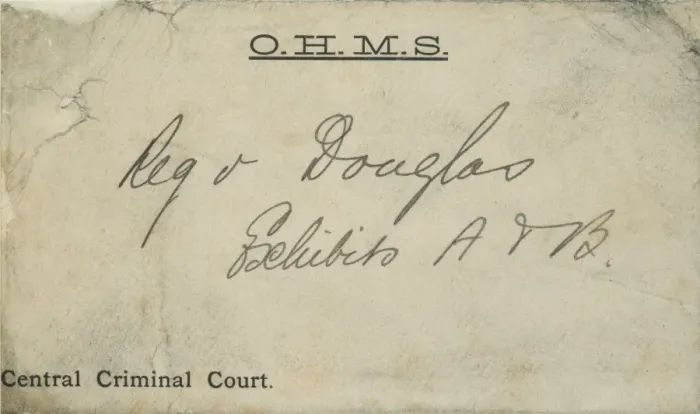 O.H.M.S.
Reg v Douglas
Exhibits A & B.
Central Criminal Court.